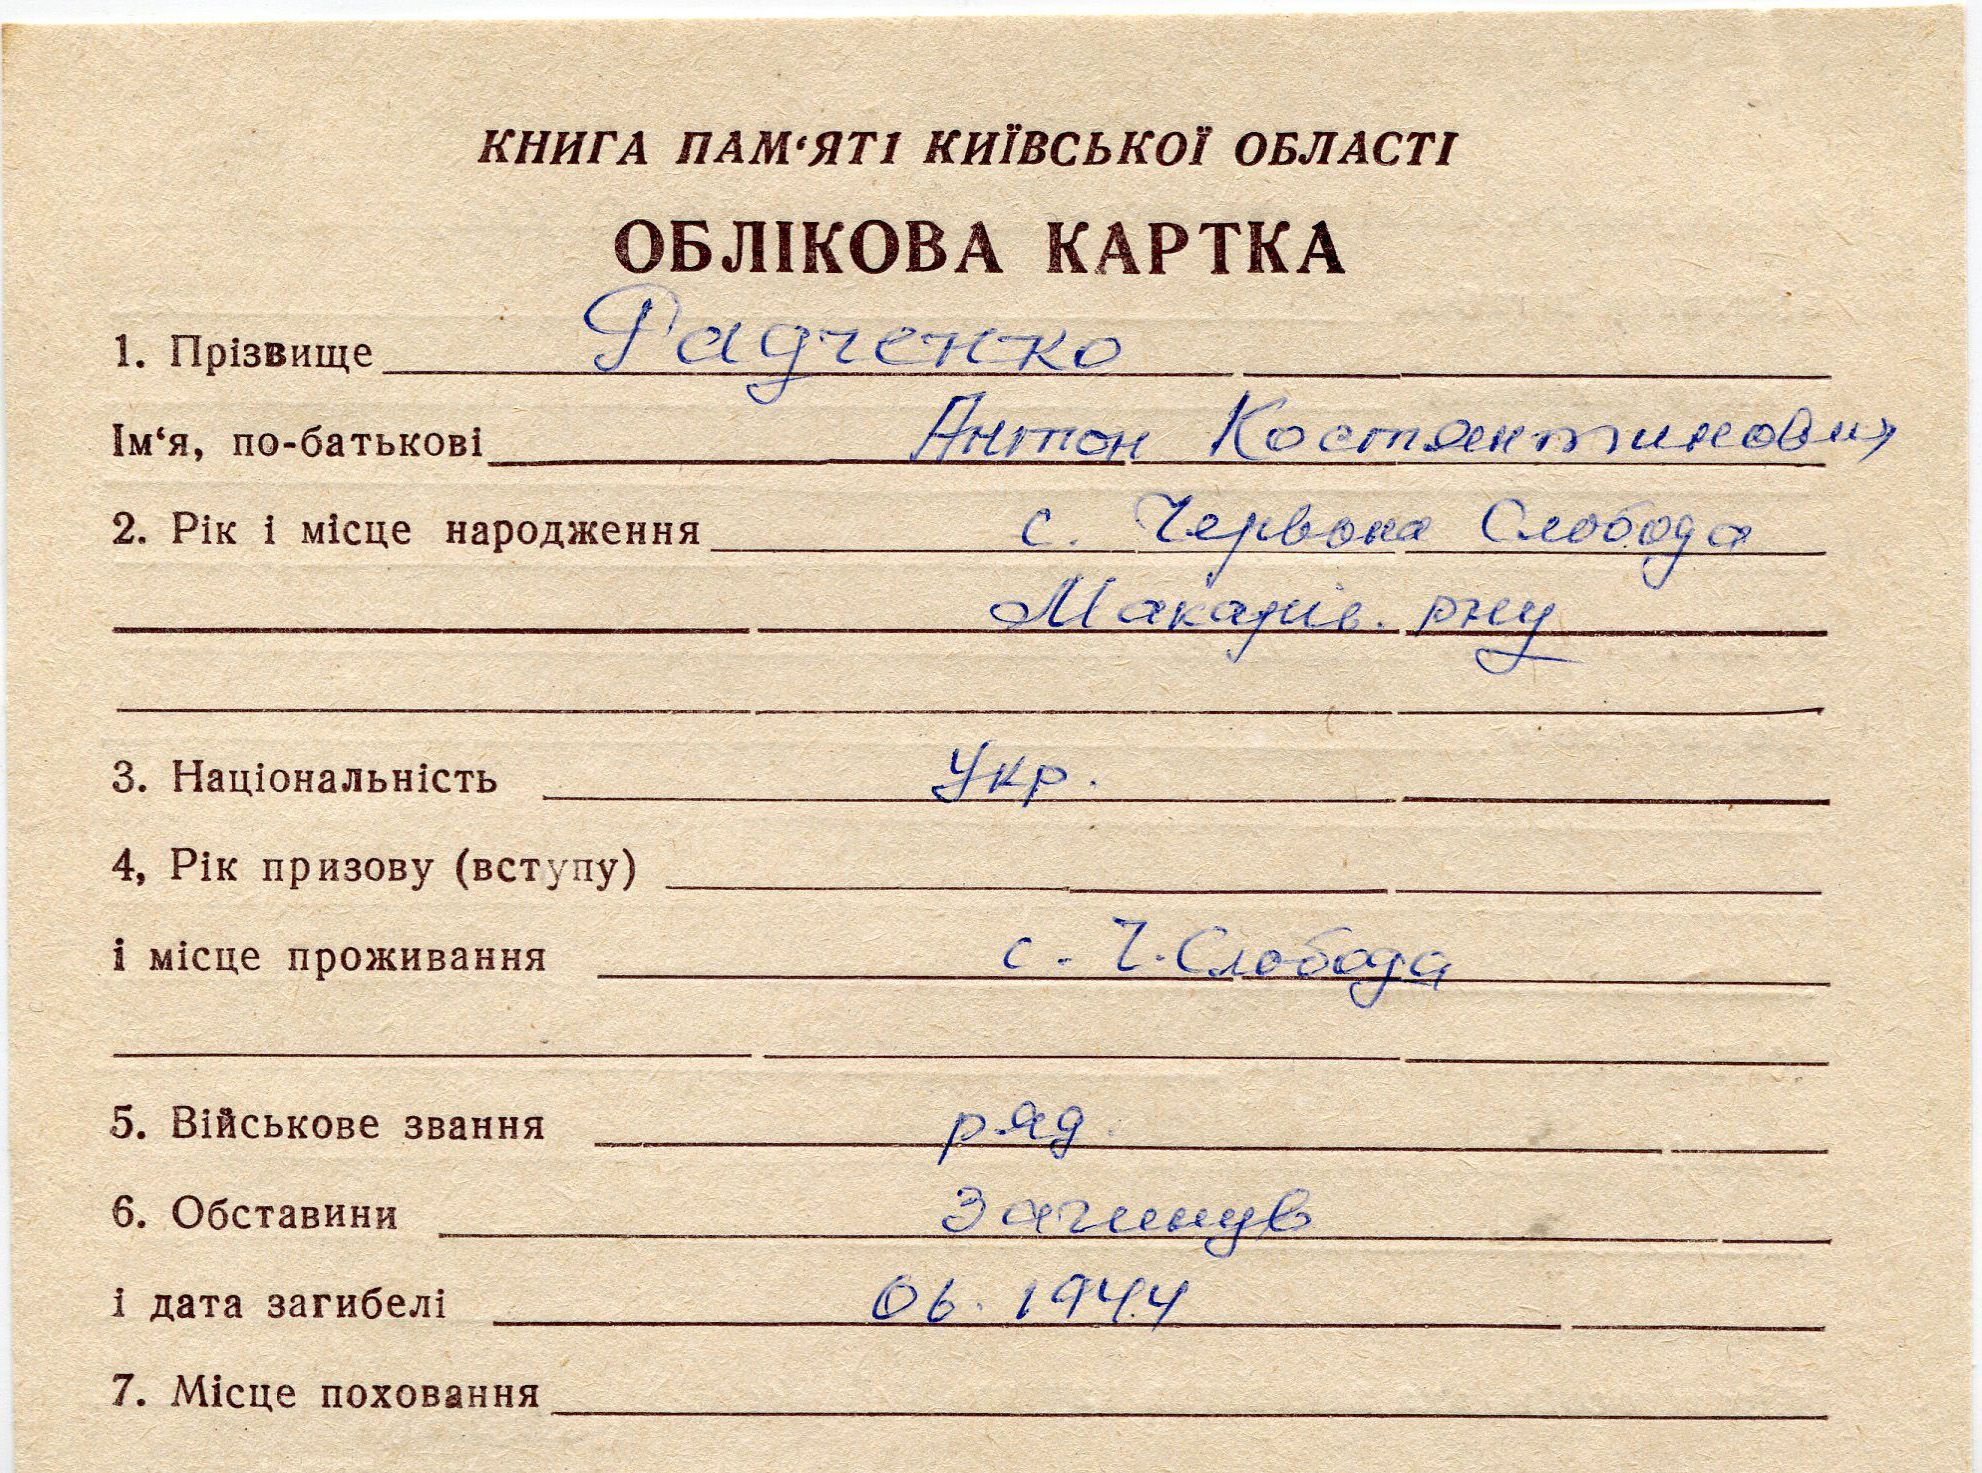 КНИГА ПАМ‘ЯТІ КИЇВСЬКОЇ ОБЛАСТІ
ОБЛІКОВА КАРТКА
1. Прізвище Радченко
Ім‘я, по-батькові Антон Костянтинович
2. Рік і місце народження с. Червона Слобода
Макарів. рну
3. Національність Укр.
4, Рік призову (вступу)
і місце проживання с. Ч. Слобода
5. Військове звання ряд.
6. Обставини Загинув
і дата загибелі 06. 1944
7. Місце поховання